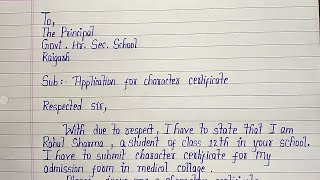 To,
The Principal
Govt. Hr. Sec. School
Raigarh
Sub:- Application for character certificate
Respected sir,
With due to respect, I have to state that I am
Rahul Sharma, a student of class 12th in your school.
I have to submit character certificate for my
admission form in medical collage.
Please